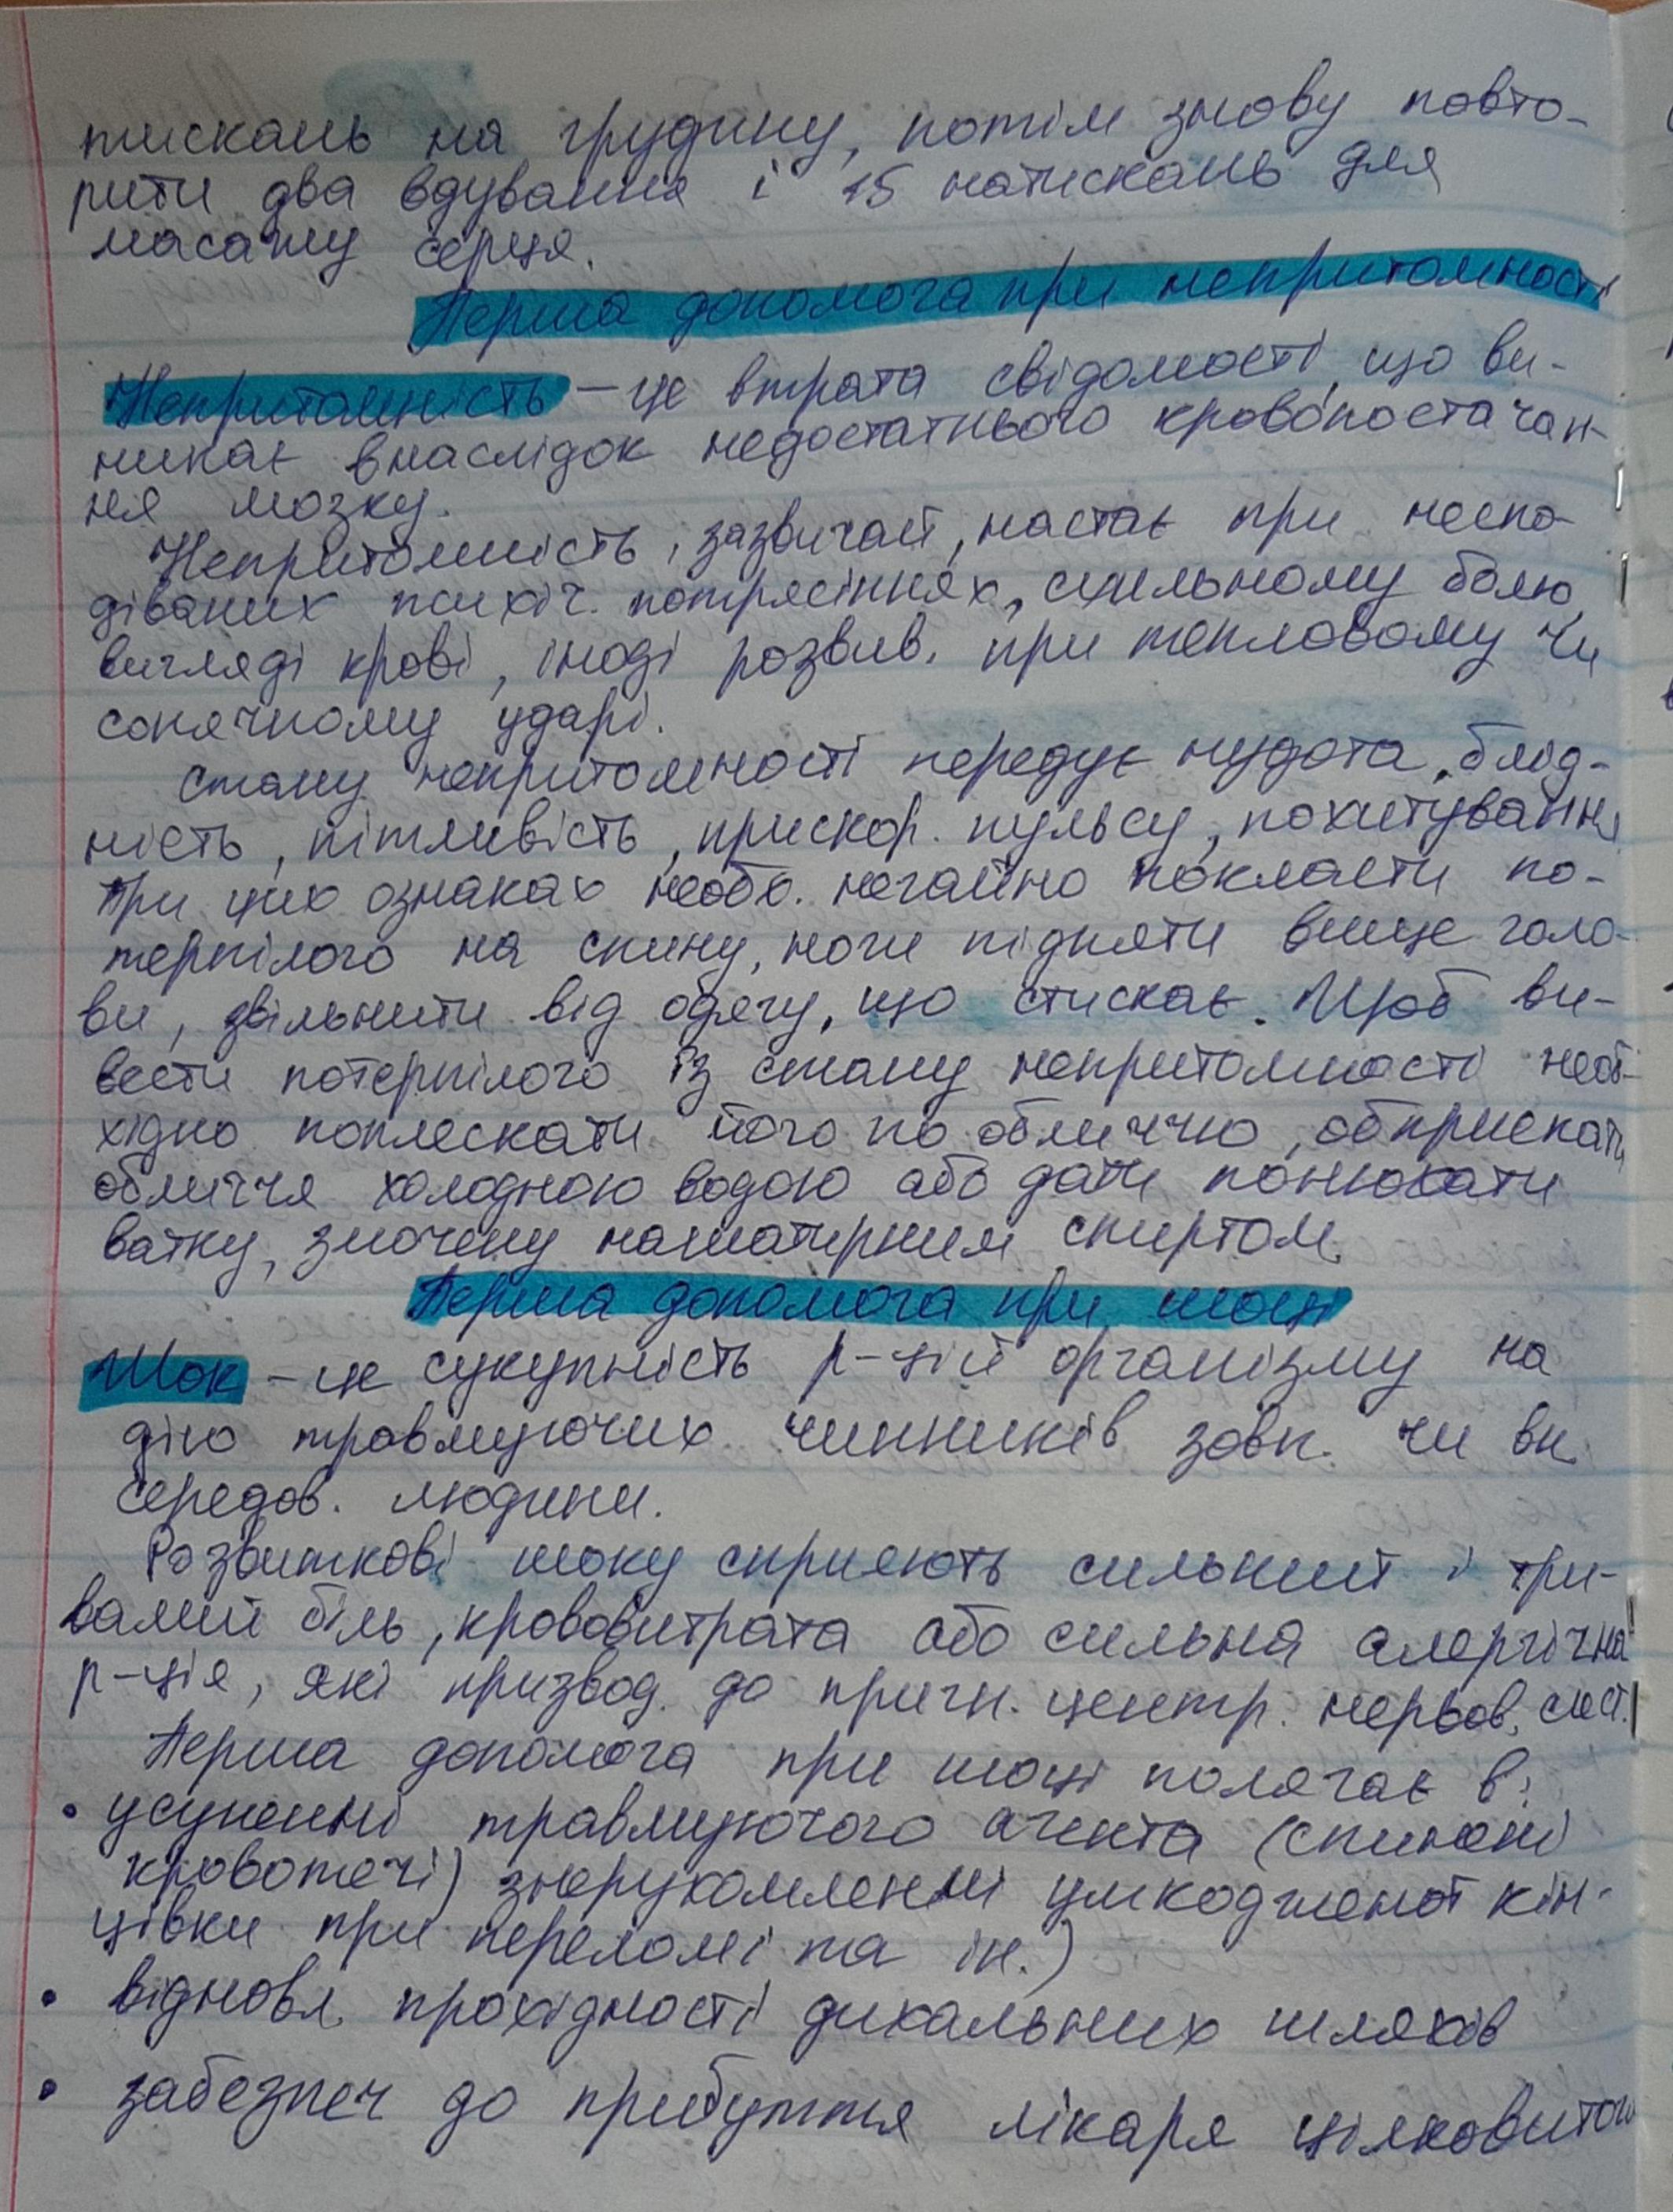 тискань на грудину, потім знову повто-
рити два вдування і 15 натискань для
масажу серця.
Перша допомога при непритомності
Непритомність – це втрата свідомості, що ви-
никає внаслідок недостатнього кровопостачан-
ня мозку.
Непритомність, зазвичай, настає при неспо-
діваних психіч. потрясіннях, сильному болю,
вигляді крові, іноді розвив. при тепловому чи
сонячному ударі.
Стану непритомності передує нудота, блід-
ність, пітливість, прискор. пульсу, похитування
При цих ознаках необх. негайно покласти по-
терпілого на спину, ноги підняти вище голо-
ви, звільнити від одягу, що стискає. Щоб ви-
вести потерпілого із стану непритомності необ-
хідно поплескати його по обличчю, обприскати
обличчя холодною водою або дати понюхати
ватку, змочену нашатирним спиртом.
Перша допомога при шоці
Шок – це сукупність р-цій організму на
дію травмуючих чинників зовн. чи вн.
середов. людини.
Розвиткові шоку сприяють сильний і три-
валий біль, крововитрата або сильна алергічна
р-ція, які призвод. до пригн. центр. нервов. сист.
Перша допомога при шоці полягає в:
• усуненні травмуючого агента (спинені
кровотечі) знерухомленні ушкодженої кін-
цівки при переломі та ін.)
• відновл. прохідності дихальних шляхів
• забезпеч до прибуття лікаря цілковитого